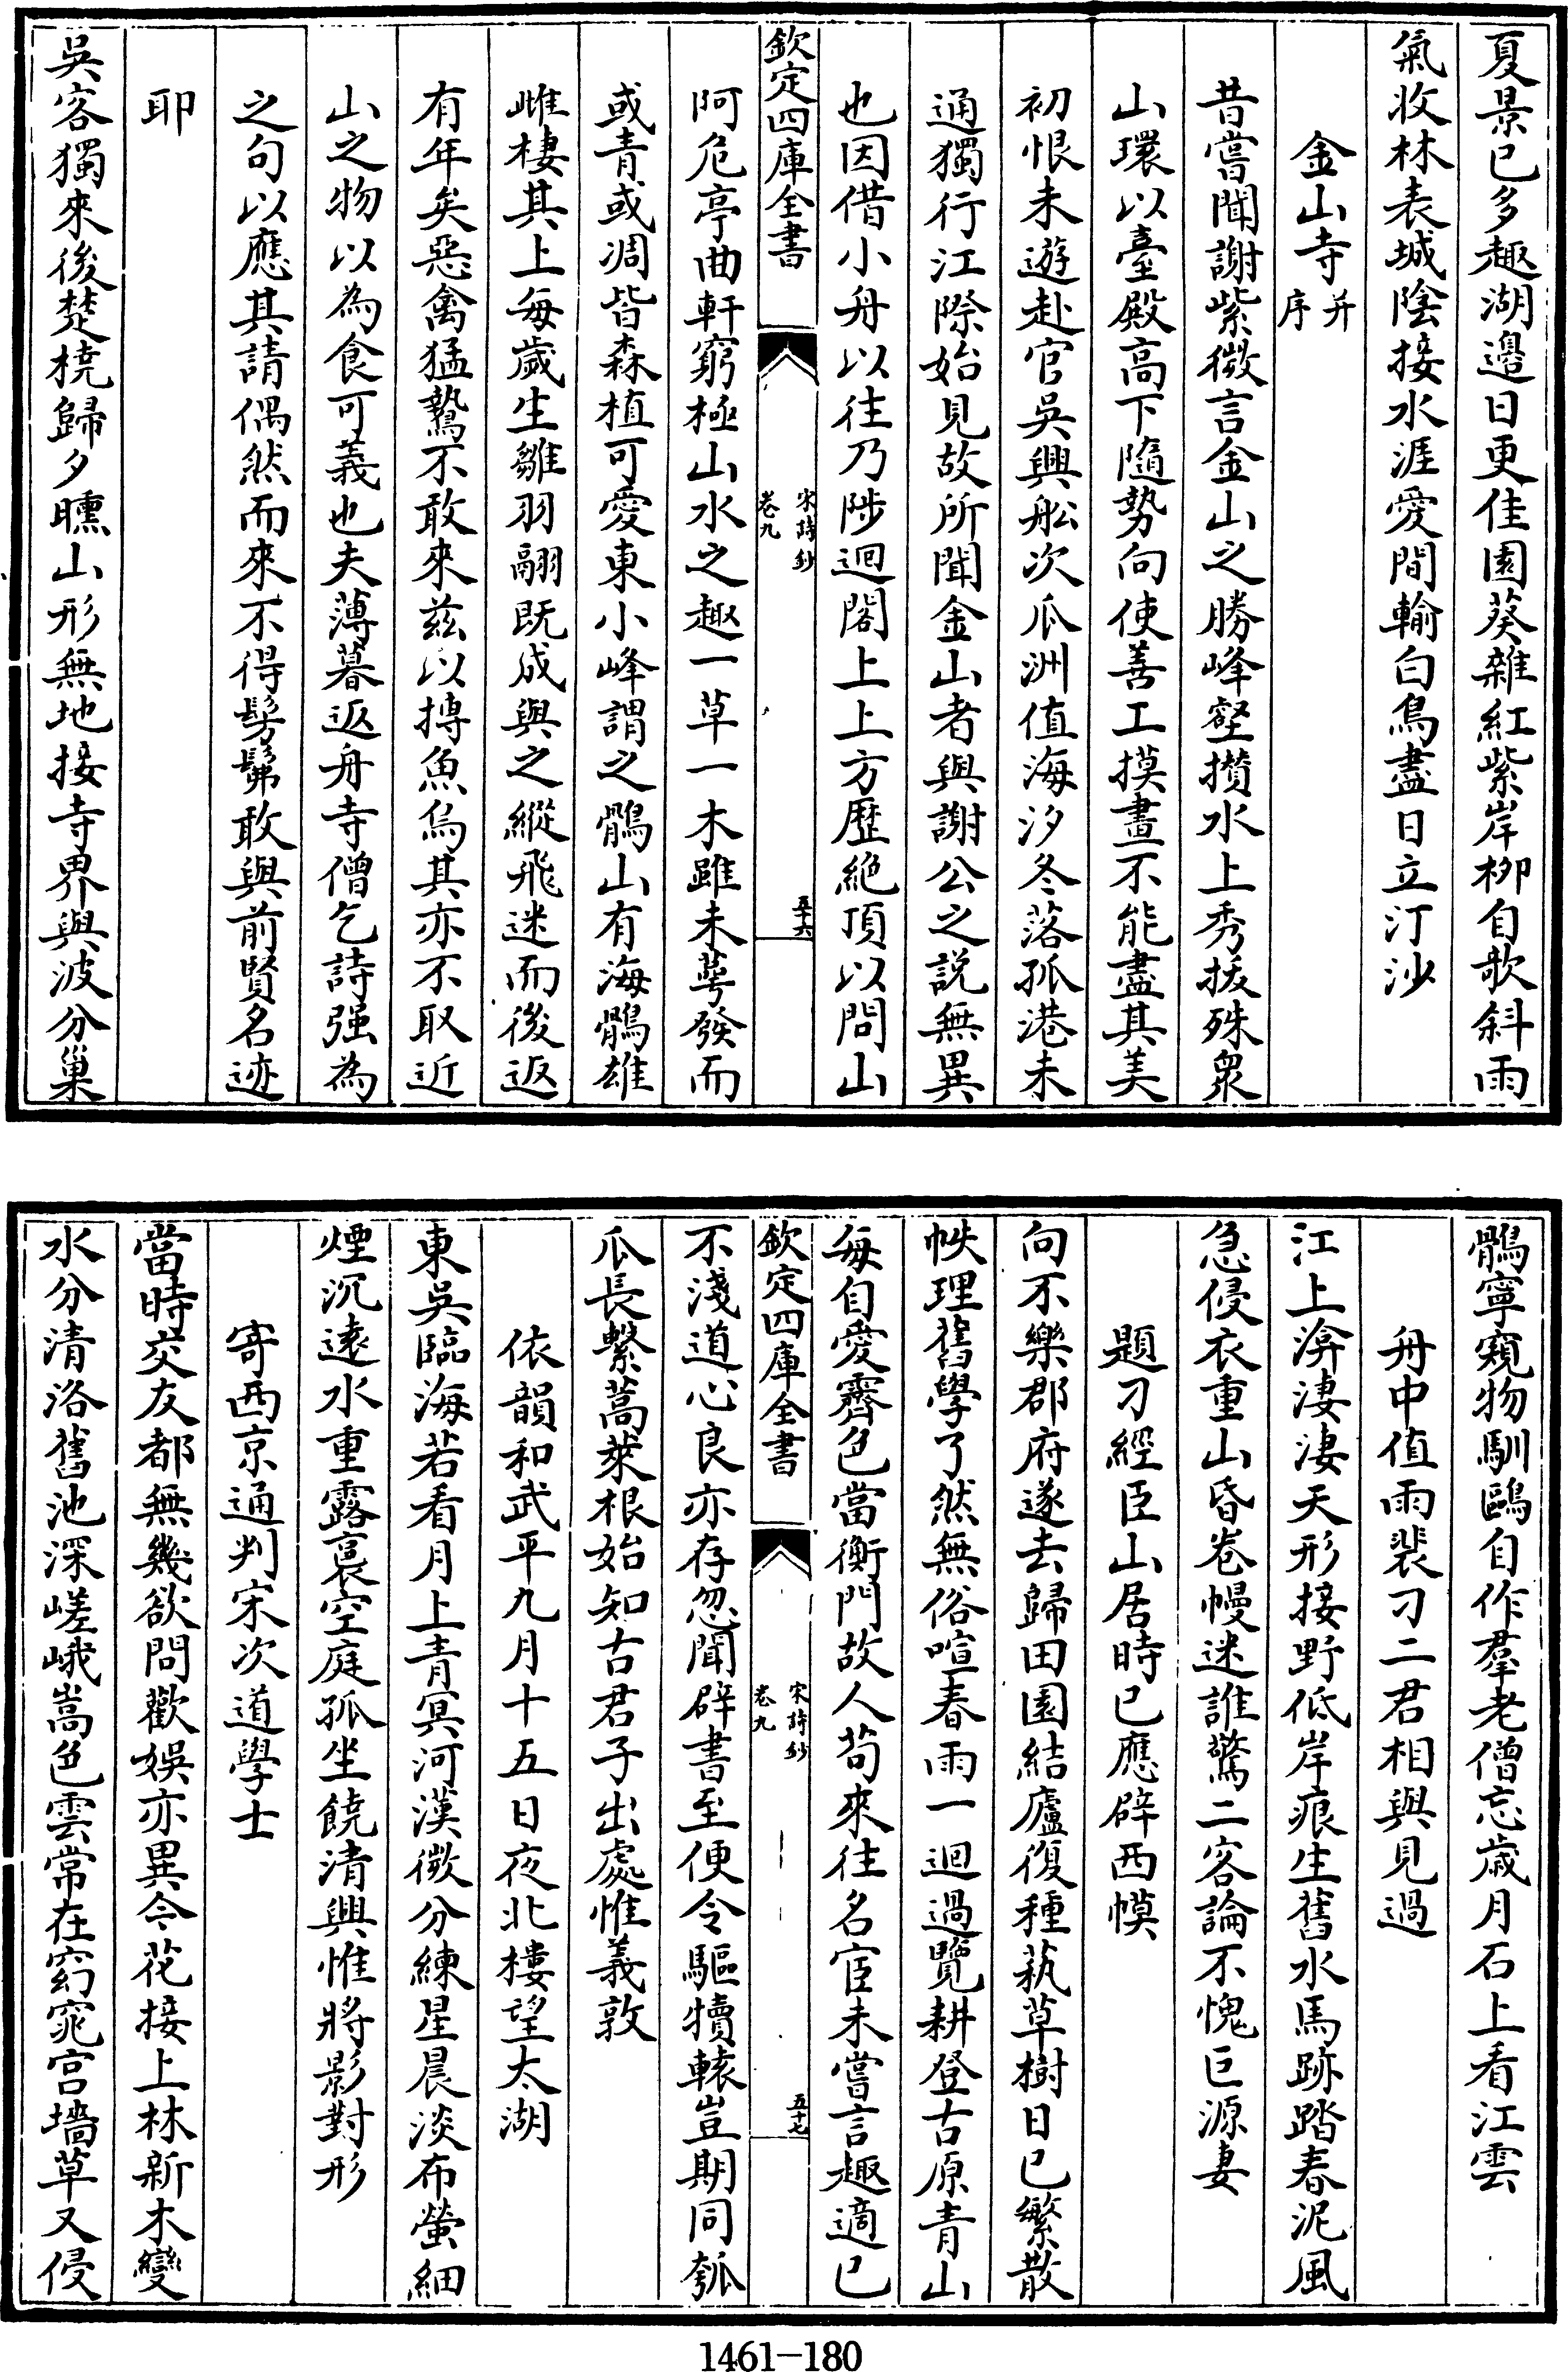 夏景已多趣湖邉日更佳園葵雜紅紫岸柳自欹斜雨
氣收林表城隂接水涯愛閒輸白鳥盡日立汀沙
金山寺并序
昔嘗聞謝紫微言金山之勝峰壑攅水上秀拔殊衆
山環以臺殿高下隨勢向使善工摸畫不能盡其美
初恨未遊赴官吳興舩次瓜洲值海汐冬落孤港未
通獨行江際始見故所聞金山者與謝公之説無異
也因借小舟以往乃陟迴閣上上方歴絶頂以問山
欽定四庫全書
宋詩鈔
卷九
五十六
阿危亭曲軒窮極山水之趣一草一木雖未萼發而
或青或凋皆森植可愛東小峰謂之鶻山有海鶻雄
雌棲其上每歲生雛羽翮既成與之縱飛迷而後返
有年矣惡禽猛鷙不敢來兹以摶魚鳥其亦不取近
山之物以為食可義也夫薄暮返舟寺僧乞詩强為
之句以應其請偶然而來不得髣髴敢與前賢名迹
耶
吳客獨來後楚橈歸夕曛山形無地接寺界與波分巢
鶻寧窺物馴鷗自作羣老僧忘歳月石上看江雲
舟中值雨裴刁二君相與見過
江上渰淒淒天形接野低岸痕生舊水馬跡踏春泥風
急侵衣重山昏巻幔迷誰驚二客論不愧巨源妻
題刁經臣山居時已應辟西幙
向不樂郡府遂去歸田園結廬復種蓺草樹日已繁散
帙理舊學了然無俗喧春雨一迴過覽耕登古原青山
每自愛霽色當衡門故人苟來往名宦未嘗言趣適已
欽定四庫全書
宋詩鈔
卷九
五十七
不淺道心良亦存忽聞辟書至便令驅犢轅豈期同瓠
瓜長繫蒿萊根始知古君子出處惟義敦
依韻和武平九月十五日夜北樓望太湖
東吳臨海若看月上青冥河漢微分練星晨淡布螢細
煙沉遠水重露裛空庭孤坐饒清興惟將影對形
寄西京通判宋次道學士
當時交友都無幾欲問歡娛亦異今花接上林新木變
水分清洛舊池深嵯峨嵩色雲常在窈窕宫墻草又侵
1461-180